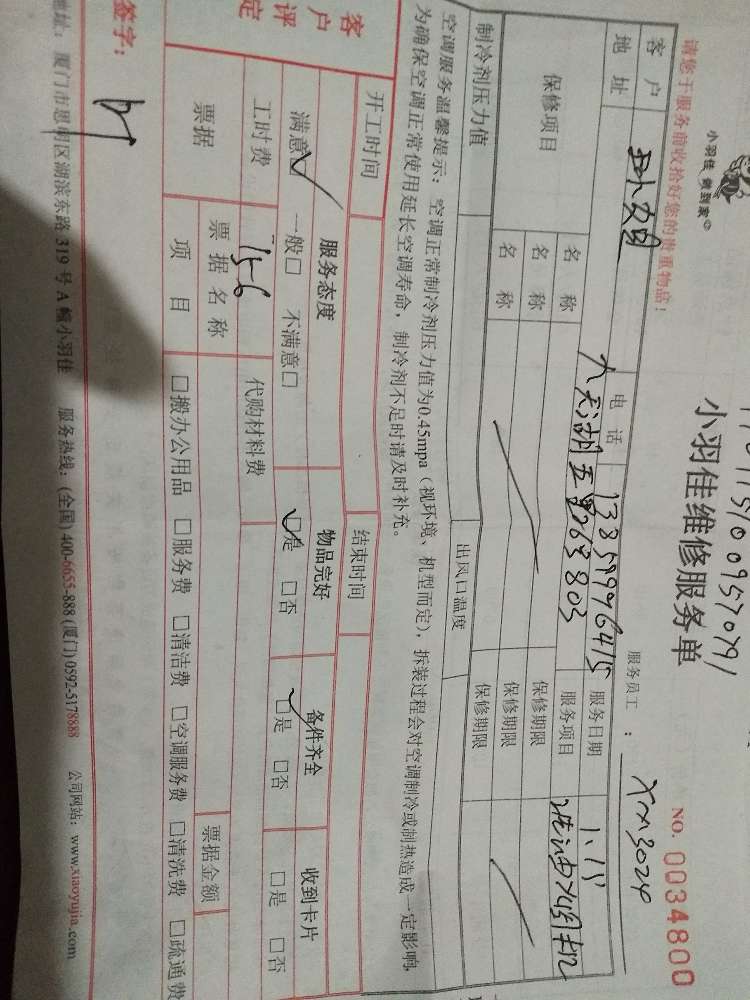 小羽佳 做到家
小羽佳维修服务单
NO. 0034800
请您于服务前收拾好您的贵重物品！
服务员工： XM3024
客户
电话 13859996415
服务日期 1.15
地址
服务项目
保修项目
名称
保修期限
名称
保修期限
名称
保修期限
制冷剂压力值
出风口温度
空调服务温馨提示：空调正常制冷剂压力值为0.45mpa（视环境、机型而定），拆装过程会对空调制冷或制热造成一定影响，
为确保空调正常使用延长空调寿命，制冷剂不足时请及时补充。
客户评定
开工时间
结束时间
服务态度
物品完好
备件齐全
收到卡片
满意☑ 一般□ 不满意□
☑是 □否
☑是 □否
□是 □否
工时费 156
代购材料费
票据
票据名称
票据金额
项目
□搬办公用品 □服务费 □清洁费 □空调服务费 □清洗费 □疏通费
签字：
地址：厦门市思明区湖滨东路319号A幢小羽佳 服务热线：(全国) 400-6655-888 (厦门) 0592-5178888 公司网站：www.xiaoyujia.com